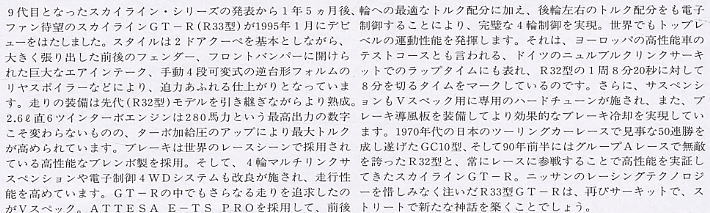 ９代目となったスカイライン・シリーズの発表から１年５ヵ月後、
ファン待望のスカイラインＧＴ－Ｒ(R33型)が1995年１月にデビ
ューをはたしました。スタイルは２ドアクーペを基本としながら、
大きく張り出した前後のフェンダー、フロントバンパーに開けら
れた巨大なエアインテーク、手動４段可変式の逆台形フォルムの
リヤスポイラーなどにより、迫力あふれる仕上がりとなっていま
す。走りの装備は先代(R32型)モデルを引き継ぎながらより熟成。
2.6ℓ直６ツインターボエンジンは280馬力という最高出力の数字
こそ変わらないものの、ターボ加給圧のアップにより最大トルク
が高められています。ブレーキは世界のレースシーンで採用され
ている高性能なブレンボ製を採用。そして、４輪マルチリンクサ
スペンションや電子制御４ＷＤシステムも改良が施され、走行性
能を高めています。ＧＴ－Ｒの中でもさらなる走りを追求したの
がＶスペック。ＡＴＴＥＳＡ Ｅ－ＴＳ ＰＲＯを採用して、前後
輪への最適なトルク配分に加え、後輪左右のトルク配分をも電子
制御することにより、完璧な４輪制御を実現。世界でもトップレ
ベルの運動性能を発揮します。それは、ヨーロッパの高性能車の
テストコースとも言われる、ドイツのニュルブルクリンクサーキ
ットでのラップタイムにも表れ、R32型の１周８分20秒に対して
８分を切るタイムをマークしているのです。さらに、サスペンシ
ョンもＶスペック用に専用のハードチューンが施され、また、ブ
レーキ導風板を装備してより効果的なブレーキ冷却を実現してい
ます。1970年代の日本のツーリングカーレースで見事な50連勝を
成し遂げたGC10型、そして90年前半にはグループＡレースで無敵
を誇ったR32型と、常にレースに参戦することで高性能を実証し
てきたスカイラインＧＴ－Ｒ。ニッサンのレーシングテクノロジ
ーを惜しみなく注いだR33型ＧＴ－Ｒは、再びサーキットで、ス
トリートで新たな神話を築くことでしょう。